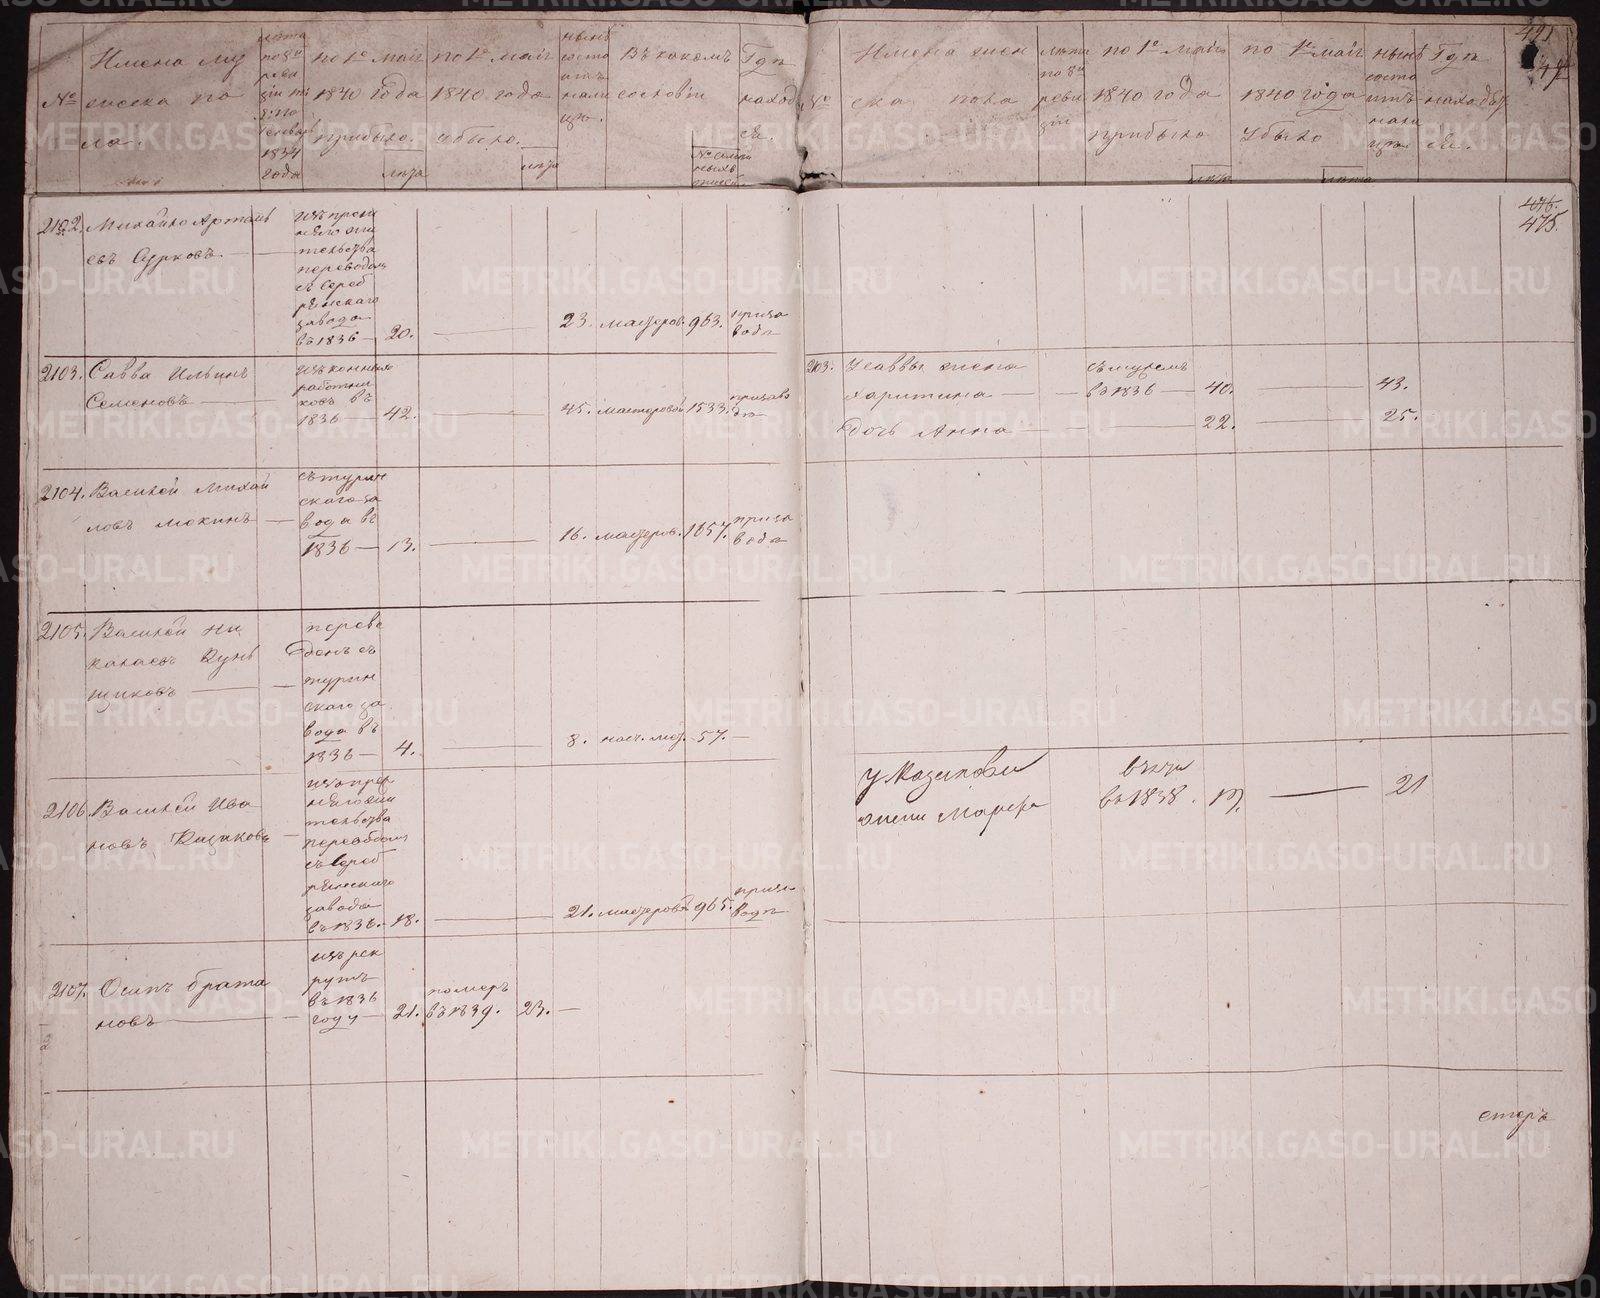 №
Имена му
жеска по
ла.
лѣта
по 8й
реви
зіи
1834
года
по 1е маія
1840 года
прибыло.
лѣта
по 1е маія
1840 года
убыло.
лѣта
нынѣ
состо
итъ
нали
цо.
Въ какомъ
сословіи
Гдѣ
наход
ся.
№
Имена жен
ска пола
лѣта
по 8й
реви
зіи
по 1е маія
1840 года
прибыло
лѣта
по 1е маія
1840 года
убыло
лѣта
нынѣ
состо
итъ
нали
цо.
Гдѣ
находят
ся.
491
476.
475.
2102. Михайло Артемь
евъ Сурковъ
тельства
переводом
съ Сереб
рянскаго
завода
въ 1836 — 20. — 23. мастеров. 963. при за
водѣ
2103. Савва Ильинъ
Семеновъ
изъ конныхъ
работни
ковъ въ
1836 42. — 45. мастеровой 1533. при заво
дѣ
2103. У Саввы жена
Харитина
съ мужемъ
въ 1836 — 40. — 43.
Дочь Анна — 22. — 25.
2104. Василей Михай
ловъ Мокинъ
съ турин
скаго за
вода въ
1836 — 13. — 16. мастеров. 1657. при за
водѣ
2105. Василей Ни
колаевъ Кунь
щиковъ
переве
денъ съ
турин
скаго за
вода въ
1836 — 4. — 8. 57. —
2106. Василей Ива
новъ Казаковъ
тельства
переводом
съ Сереб
рянскаго
завода
въ 1836. 18. — 21. мастеровой 965. при за
водѣ
У Казакова
жена Марфа
въ 1838. 19. — 21
2107. Осипъ Брата
новъ
изъ рек
рутъ
въ 1836
году — 21. померъ
въ 1839. 23. —
METRIKI.GASO-URAL.RU